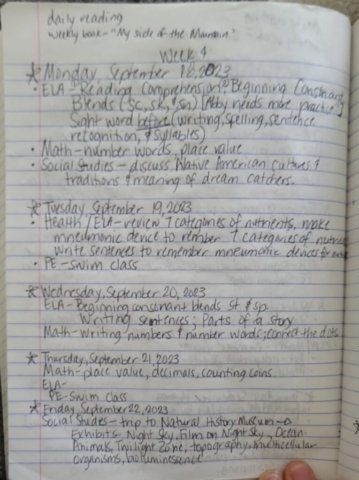 daily reading
weekly book - "My side of the Mountain"
Week 4
Monday, September 18, 2023
• ELA - Reading Comprehension Beginning Consonant
Blends (sc, sk, & sn) (Abby needs more practice)
Sight word before (writing, spelling, sentence
recognition, & syllables)
• Math - number words, place value
• Social Studies - discuss Native American cultures &
traditions & meaning of dream catchers.
Tuesday September 19, 2023
• Health / ELA - review 7 categories of nutrients, make
mneumonic device to rember 7 categories of
Write sentences to remember mneumonic devices for
• PE - swim class
Wednesday, September 20, 2023
ELA - Beginning consonant blends st & sp
Writing sentences; Parts of a story
Math - Writing numbers & number words, connect the dots
Thursday, September 21, 2023
Math - place value, decimals, counting coins
ELA -
PE - Swim class
Friday, September 22, 2023
Social Studies - trip to Natural History Museum ->
Exhibits - Night Sky, Film on Night Sky, Ocean
Animals, Twilight Zone, topography, multicellular
organisms, bioluminessence